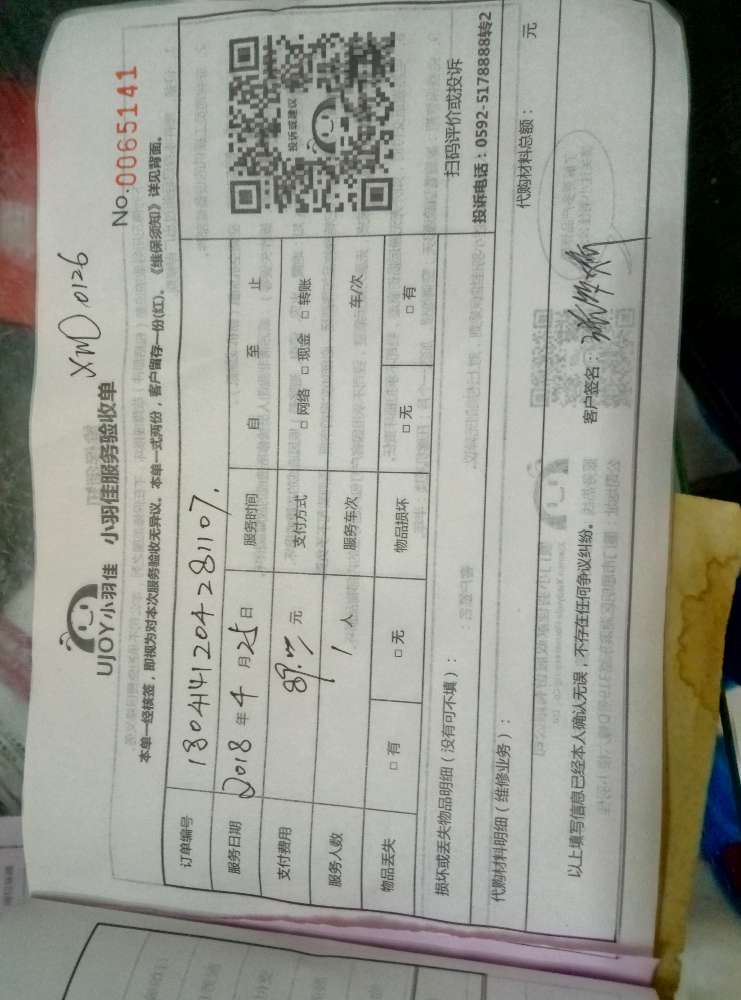 UJOY小羽佳 小羽佳服务验收单
XMD0126
No:0065141
本单一经核签，即视为对本次服务验收无异议。本单一式两份，客户留存一份(红)。《维保须知》详见背面。
订单编号 1804141204281107.
服务日期 2018 年 4 月 25 日 服务时间 自 至 止
支付费用 元 支付方式 □ 网络 □ 现金 □ 转账
服务人数 1 人 服务车次 车/次
物品丢失 □ 有 □ 无 物品损坏 □ 无 □ 有
投诉或建议
扫码评价或投诉
投诉电话：0592-5178888转2
损坏或丢失物品明细（没有可不填）：
代购材料明细（维修业务）： 代购材料总额： 元
以上填写信息已经本人确认无误，不存在任何争议纠纷。 客户签名：